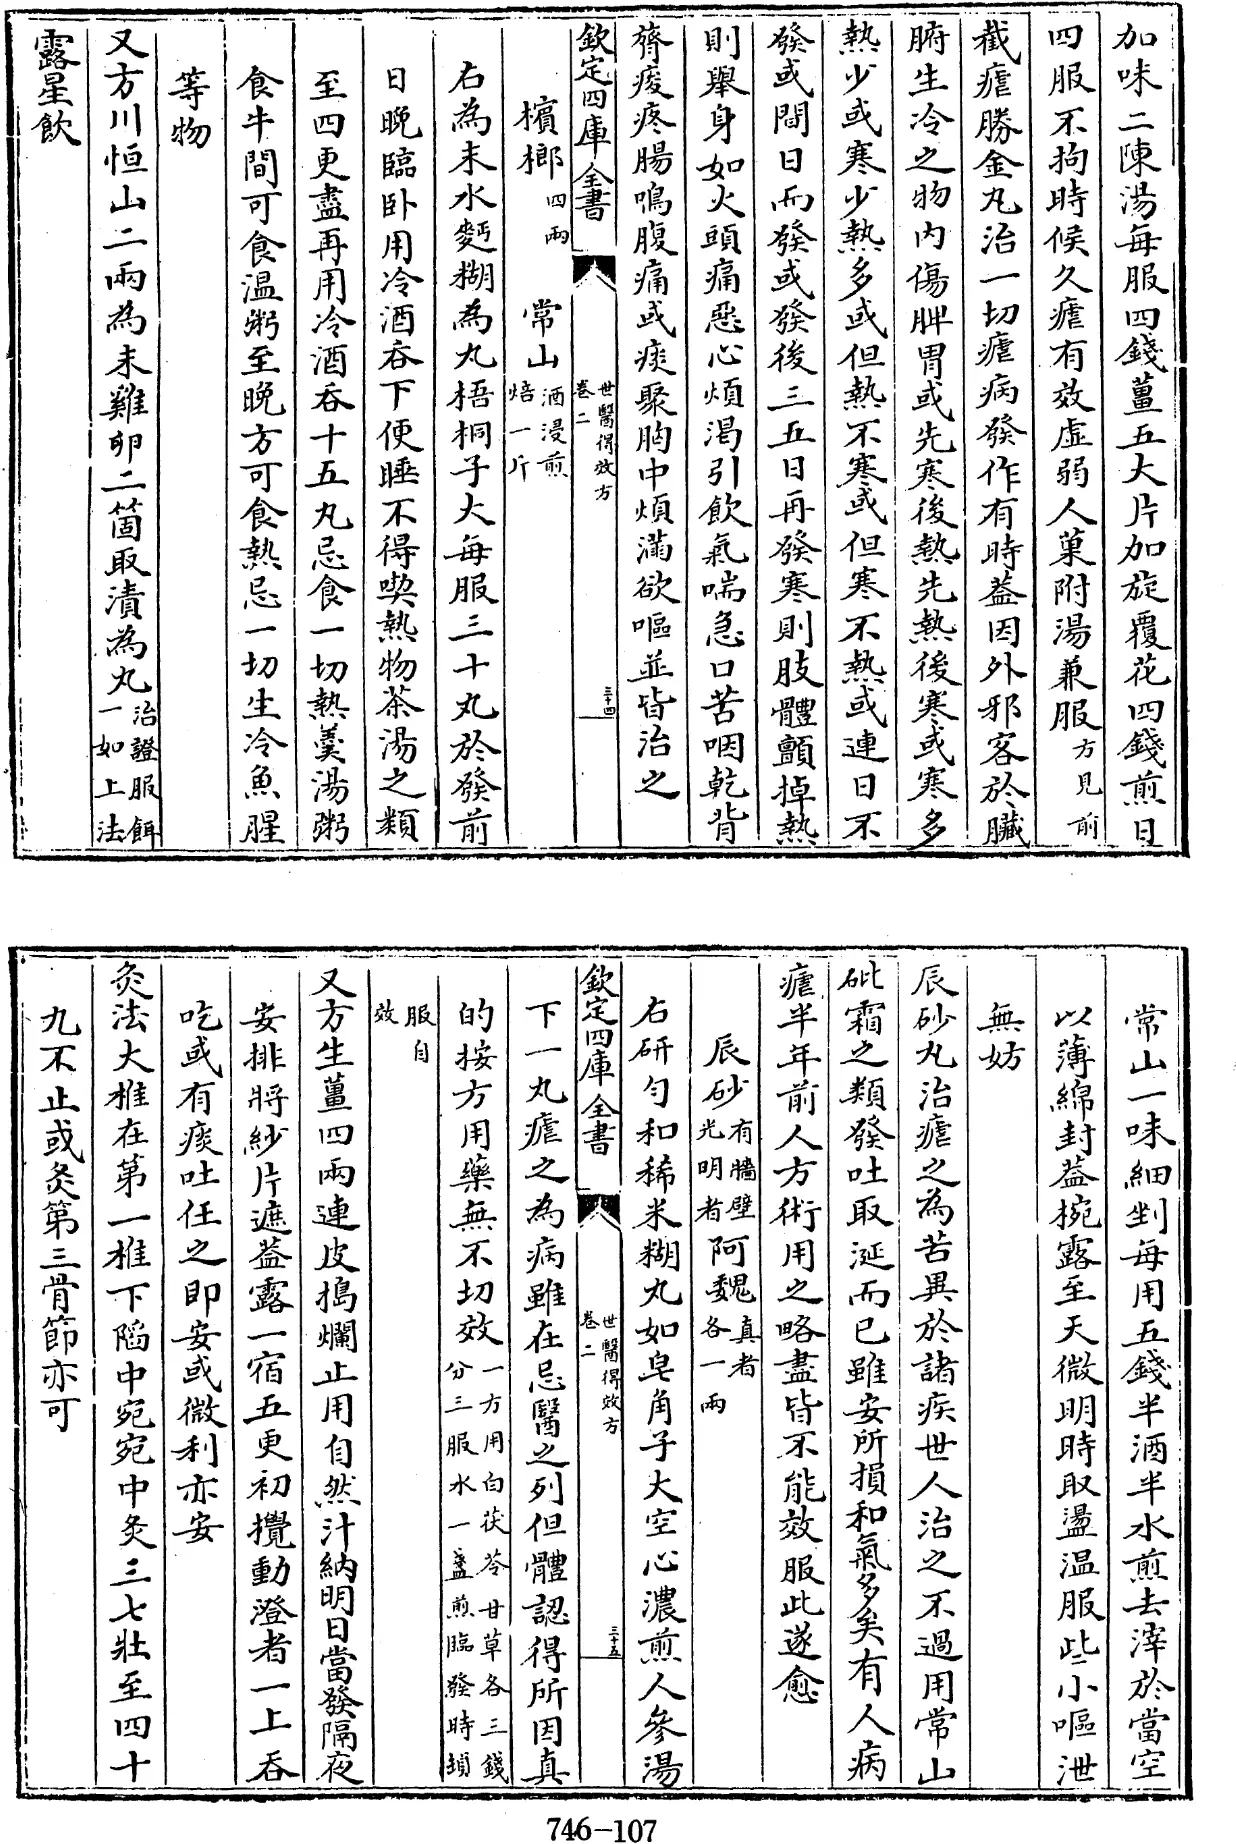 加味二陳湯每服四錢薑五大片加旋覆花四錢煎日
四服不拘時候久瘧有效虛弱人菓附湯兼服方見前
截瘧勝金丸治一切瘧病發作有時蓋因外邪客於臟
腑生冷之物内傷脾胃或先寒後熱先熱後寒或寒多
熱少或寒少熱多或但熱不寒或但寒不熱或連日不
發或間日而發或發後三五日再發寒則肢體顫掉熱
則舉身如火頭痛惡心煩渴引飲氣喘急口苦咽乾背
膂痠疼腸鳴腹痛或痰聚胸中煩滿欲嘔並皆治之
欽定四庫全書
世醫得效方
卷二
三十四
檳榔四兩 常山酒浸煎焙一斤
右為末水麪糊為丸梧桐子大每服三十丸於發前
日晚臨卧用冷酒吞下便睡不得喫熱物茶湯之類
至四更盡再用冷酒吞十五丸忌食一切熱羹湯粥
食牛間可食温粥至晚方可食熱忌一切生冷魚腥
等物
又方川恒山二兩為末雞卵二箇取漬為丸治證服餌一如上法
露星飲
常山一味細剉每用五錢半酒半水煎去滓於當空
以薄綿封蓋椀露至天微明時取盪温服些小嘔泄
無妨
辰砂丸治瘧之為苦異於諸疾世人治之不過用常山
砒霜之類發吐取涎而已雖安所損和氣多矣有人病
瘧半年前人方術用之略盡皆不能效服此遂愈
辰砂有牆壁光明者 阿魏真者各一兩
右研匀和稀米糊丸如皂角子大空心濃煎人參湯
欽定四庫全書
世醫得效方
卷二
三十五
下一丸瘧之為病雖在忌醫之列但體認得所因真
的按方用藥無不切效一方用白茯苓甘草各三錢分三服水一盞煎臨發時頓
服自效
又方生薑四兩連皮搗爛止用自然汁納明日當發隔夜
安排將紗片遮蓋露一宿五更初攪動澄者一上吞
吃或有痰吐任之即安或微利亦安
灸法大椎在第一椎下陷中宛宛中灸三七壯至四十
九不止或灸第三骨節亦可
746-107